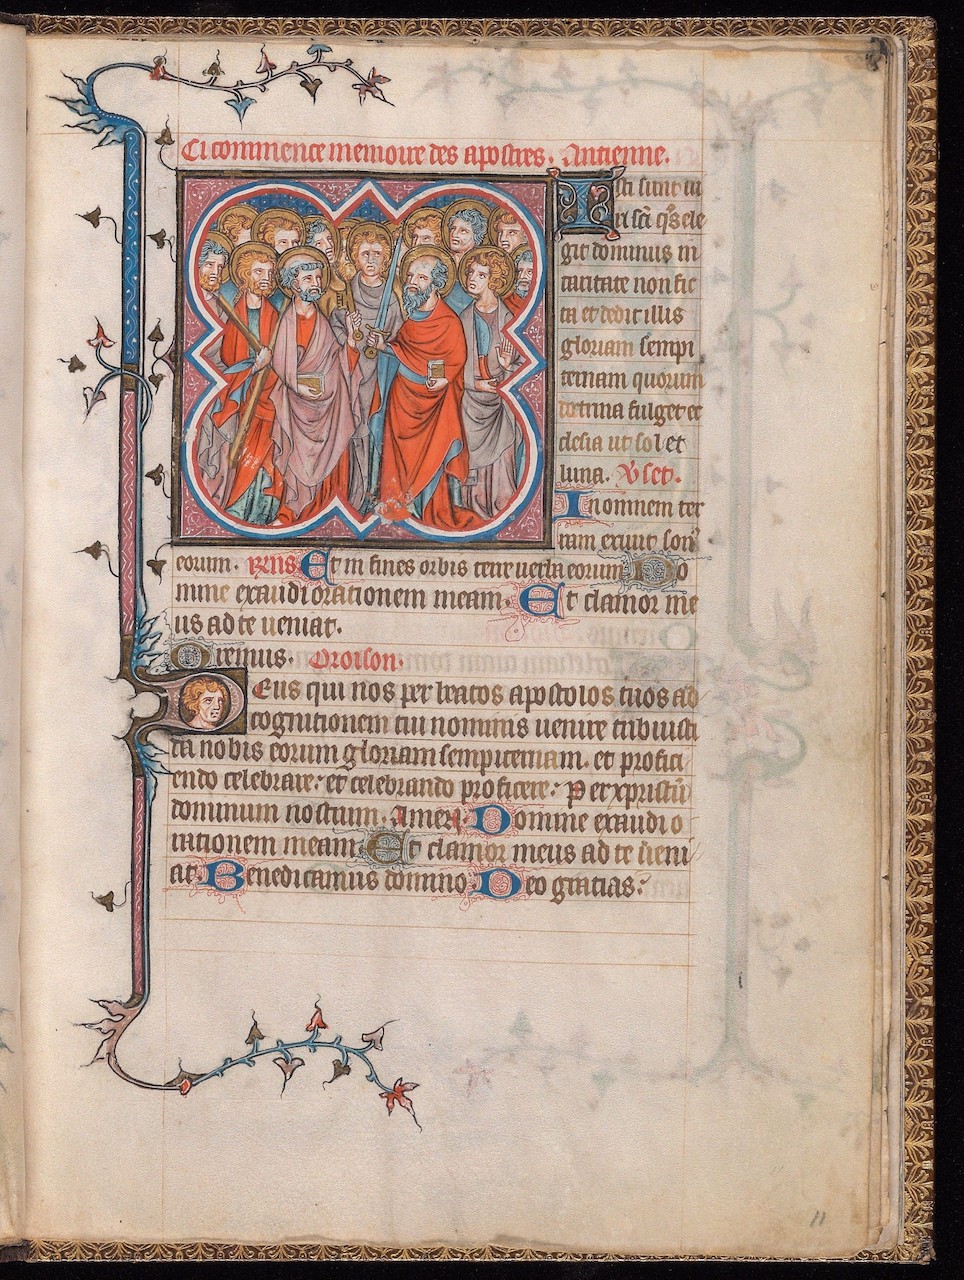 Ci commence memoire des apostres. Antienne.
Isti sunt ui
ri sci qs ele
git dominus in
caritate non fic
ta et dedit illis
gloriam sempi
ternam quorum
doctrina fulget ec
clesia ut sol et
luna. V set.
In omnem ter
ram exiuit son
eorum. Et in fines orbis terre uerba eorum Do
mine exaudi orationem meam. Et clamor me
us ad te ueniat.
Oremus. Oroison.
Deus qui nos per beatos apostolos tuos ad
cognitionem tui nominis uenire tribuisti
da nobis eorum gloriam sempiternam. et profici
endo celebrare: et celebrando proficere: Per xpristū
dominum nostrum. Amen Domine exaudi o
rationem meam Et clamor meus ad te ueni
at Benedicamus domino Deo gratias:
11